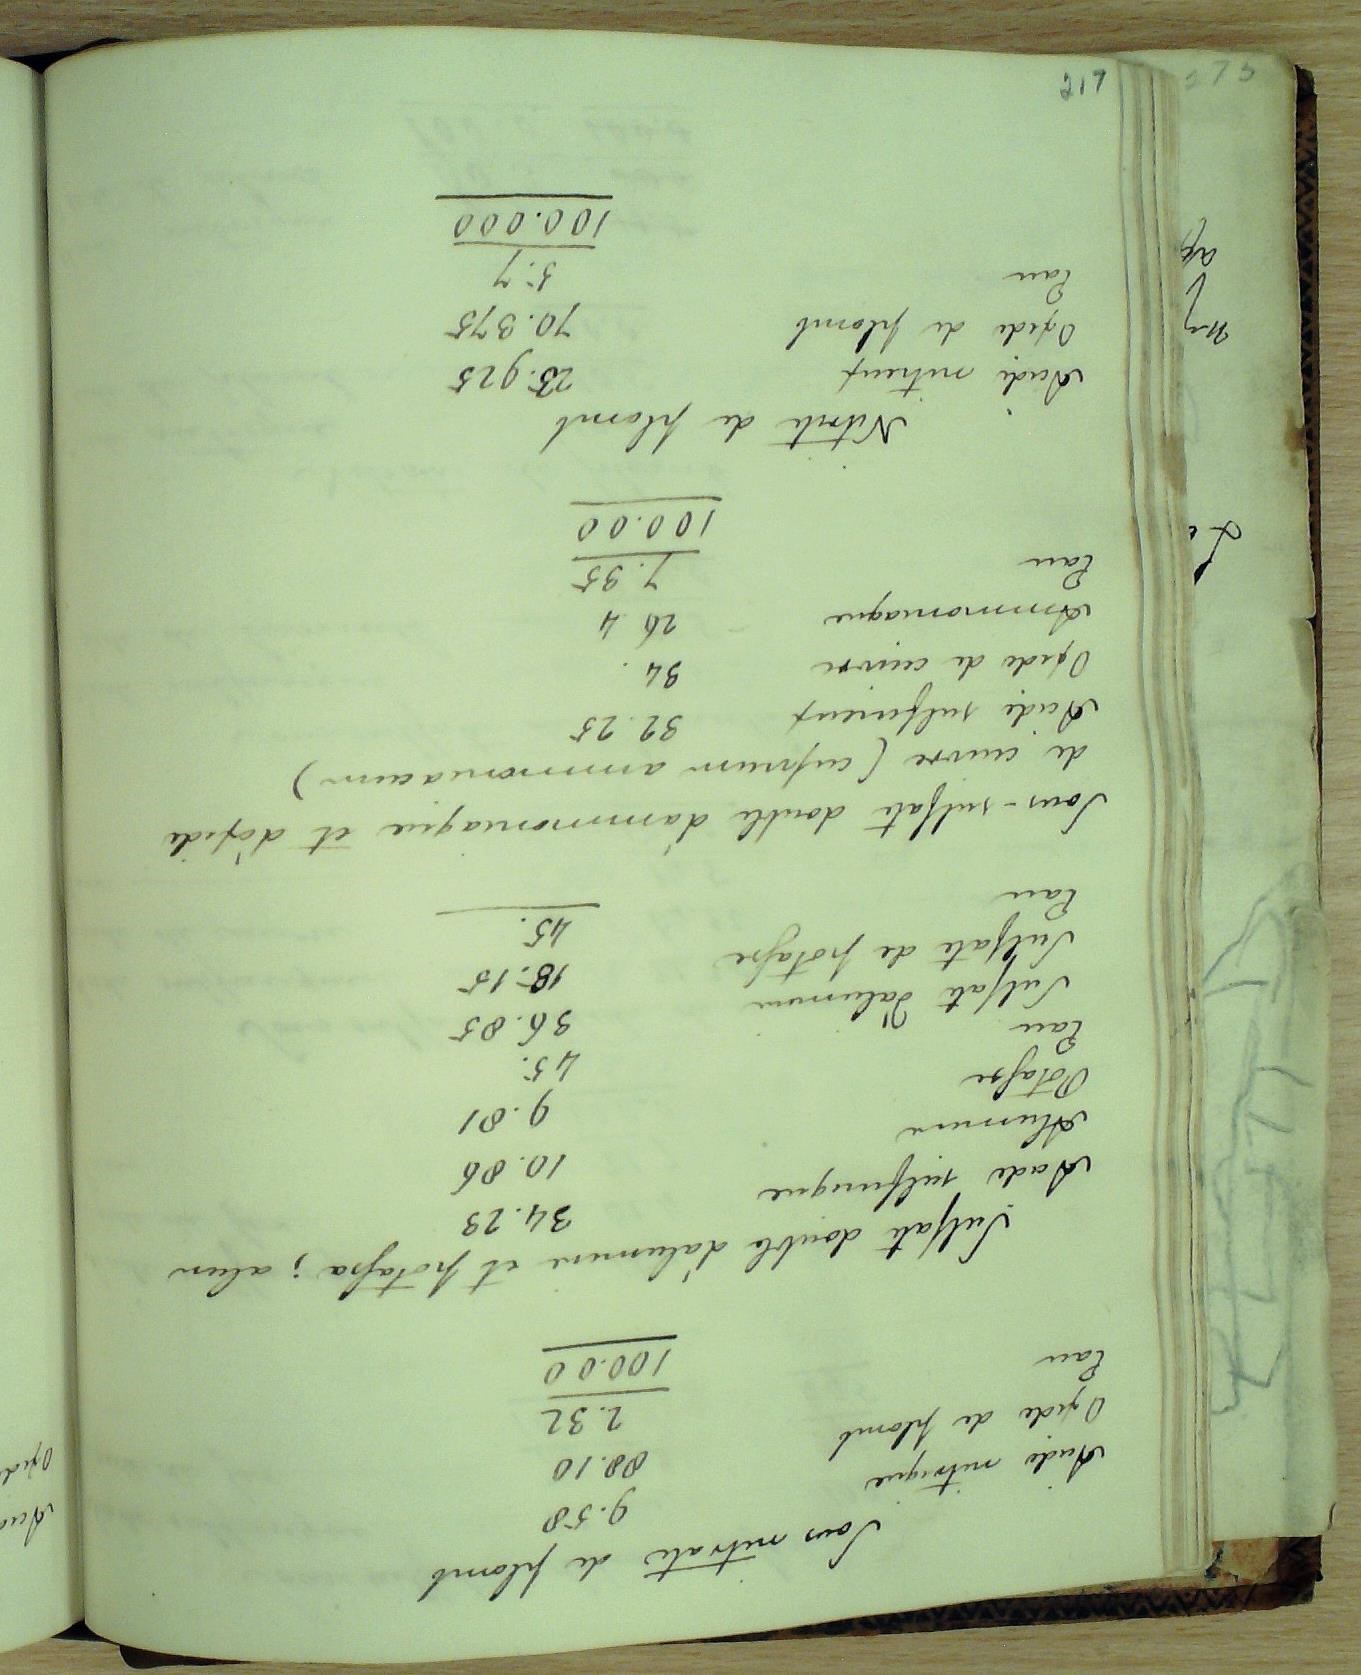 Sous nitrate de plomb
Acide nitrique 9.58
Oxide de plomb 88.10
Eau 2.32
100.00
Sulfate double d'alumine et potasse ; alun
Acide sulfurique 34.23
Alumine 10.86
Potasse 9.81
Eau 45.
Sulfate d'alumine 36.85
Sulfate de potasse 18.15
Eau 45.
Sous-sulfate double d'ammoniaque et d'oxide
de cuivre (cuprum ammoniacum)
Acide sulfurieux 32.25
Oxide de cuivre 34.
Ammoniaque 26.4
Eau 7.35
100.00
Nitrite de plomb
Acide nitreux 23.925
Oxide de plomb 70.375
Eau 5.7
100.000
217